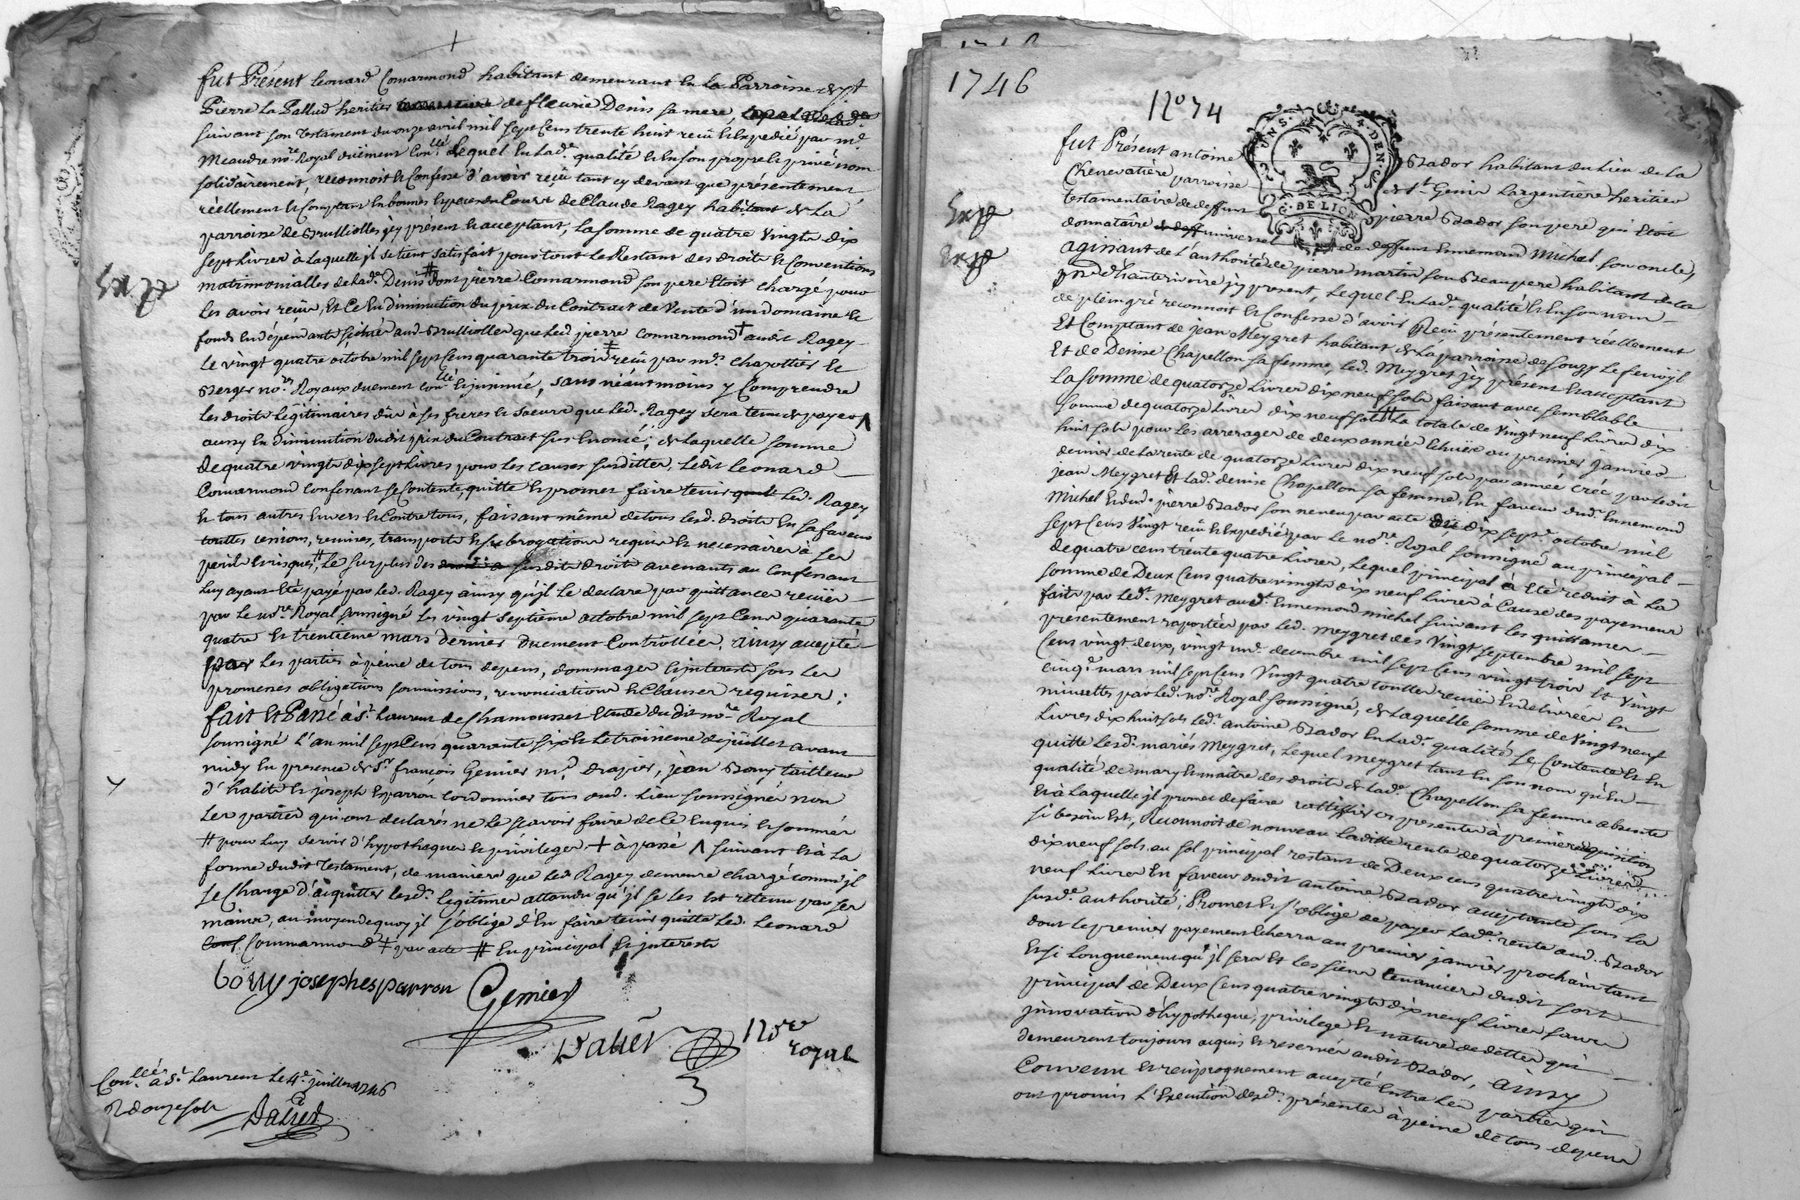 fut Présent leonard Comarmond habitant demeurant en la Parroisse de st
Pierre la Pallud heritier de fleurie Denis sa mere,
suivant son testament du onze avril mil sept cens trente huit reçû et expedié par me
Meaudre nore Royal düement conllé lequel en lade qualité et en son propre et privé nom
solidairement, reconnoit et confesse d'avoir reçû tant cy devant que présentement
réellement et comptant en bonnes especes du Cours de Claude Ragey habitant de la
parroisse de Brulliolles icy présent et acceptant, la somme de quatre vingts dix
sept livres à laquelle il se tient satisfait pour tout le Restant des droits et conventions
matrimonialles de lade Denis # dont pierre Comarmond son pere étoit chargé pour
les avoir reçüs, et ce en diminution du prix du Contract de Vente d'un domaine et
fonds en dépendants scitués aud. Brulliolles que led. pierre comarmond + audit Ragey
le vingt quatre octobre mil sept cens quarante trois ‡ reçû par mes chapottier et
Berger nores Royaux duement conllé et insinué, sans néantmoins y comprendre
les droits légitimaires dûs à ses freres et soeurs que led. Ragey sera tenu de payer Λ
aussy en diminution dudit prix du Contract sus énoncé, de laquelle somme
de quatre vingts dix sept livres pour les causes susdittes, ledit leonard
Comarmond confessant se contente, quitte et promet faire tenir quitte led. Ragey
et tous autres envers et contre tous, faisant même de tous lesd. droits en sa faveur
touttes cessions, remises, transports et subrogations requises et necessaires à ses
perils et risques, # le surplus des susdits droits avenants au confessant
luy ayant été payé par led. Ragey ainsy qu'il le declare par quittances reçües
par le nore Royal soussigné les vingt septième octobre mil sept cens quarante
quatre et trentieme mars dernier duement Controllées, ainsy accepté
par les parties à peine de tous depens, dommages et interests sous les
promesses obligations soumissions, renonciations et clauses requises;
fait et Passé à st Laurent de Chamousset Etude dudit nore Royal
soussigné l'an mil sept cens quarante six et le troisieme de juillet avant
midy en presence de sr françois Genier md drapier, jean Bouy tailleur
d'habits et joseph Esparron cordonnier tous aud. lieu soussignés non
les parties qui ont declarés ne le sçavoir faire de ce enquis et sommés
# pour luy servir d'hypotheques et privileges + à passé Λ suivant et à la
forme dudit testament, de maniere que led. Ragey demeure chargé comme il
se charge d'acquitter lesd. legitimes attendu qu'il se les est retenu par ses
mains, au moyen de quoy il s'oblige d'en faire tenir quitte led. leonard
Commarmond ‡ par acte # en principal et interests
bouy josephesparron Genier
Daliet nore
royal
Conllé à st Laurent le 4e juillet 1746
R douze sols
Daliet
Exp
1746
No 74
G. DE LION
Exp
Exp
fut Présent antoine Bador habitant du lieu de la
Chenevatière parroisse de st Genis Largentiere heritier
testamentaire de deffunt pierre Bador son pere qui étoit
donnataire universel de deffunt Ennemond Michel son oncle,
agissant de l'authorité de pierre martin son Beaupere habitant de la
psse d'hauterivoire icy present, lequel en lade qualité et en son nom
de plein gré reconnoit et confesse d'avoir Reçû présentement réellement
et Comptant de jean Meygret habitant de la parroisse de Souzy Le
et de Denise Chapellon sa femme, led. Meygret icy présent et acceptant
la somme de quatorze livres dix neuf sols faisant avec semblable
somme de quatorze livres dix neuf sols la totale de vingt neuf livres dix
huit sols pour les arrerages de deux années échües au premier janvier
dernier de la rente de quatorze livres dix neuf sols par année créé par ledit
jean Meygret et lade denise Chapellon sa femme, en faveur dud. Ennemond
Michel et dud. pierre Bador son neveu par acte dû dix sept octobre mil
sept cens vingt reçû et expedié par le nore Royal soussigné au principal
de quatre cens trente quatre livres, lequel principal à été reduit à la
somme de Deux cens quatre vingts dix neuf livres à Cause des payemens
faits par led. Meygret aud. Ennemond michel suivant les quittances
présentement raportées par led. Meygret des vingt septembre mil sept
cens vingt deux, vingt un decembre mil sept cens vingt trois et vingt
cinq mars mil sept cens vingt quatre touttes reçües et délivrées en
minuttes par led. nore Royal soussigné, de laquelle somme de vingt neuf
livres dix huit sols led. antoine Bador en lade qualité se contente et en
quitte lesd. mariés Meygret, lequel meygret tant en son nom qu'en
qualité de mary et maître des droits de lade Chapellon sa femme absente
et à laquelle il promet de faire rattiffier ces presentes à première réquisition
si besoin est, Reconnoit de nouveau laditte rente de quatorze livres
dix neuf sols au sol principal restant de Deux cens quatre vingts dix
neuf livres en faveur dudit antoine Bador acceptant sous la
susde authorité; Promet et s'oblige de payer lade rente aud. Bador
dont le premier payement écherra au premier janvier prochain tant
et si longuement qu'il sera et les siens tenanciers dudit sort
principal de Deux cens quatre vingts dix neuf livres sans
innovation d'hypotheque, privilege et nature de dettes qui
demeurent toujours acquis et reservés audit Bador, ainsy
Convenu et réciproquement accepté entre les parties qui
ont promis l'Execution desd. présentes à peine de tous depens